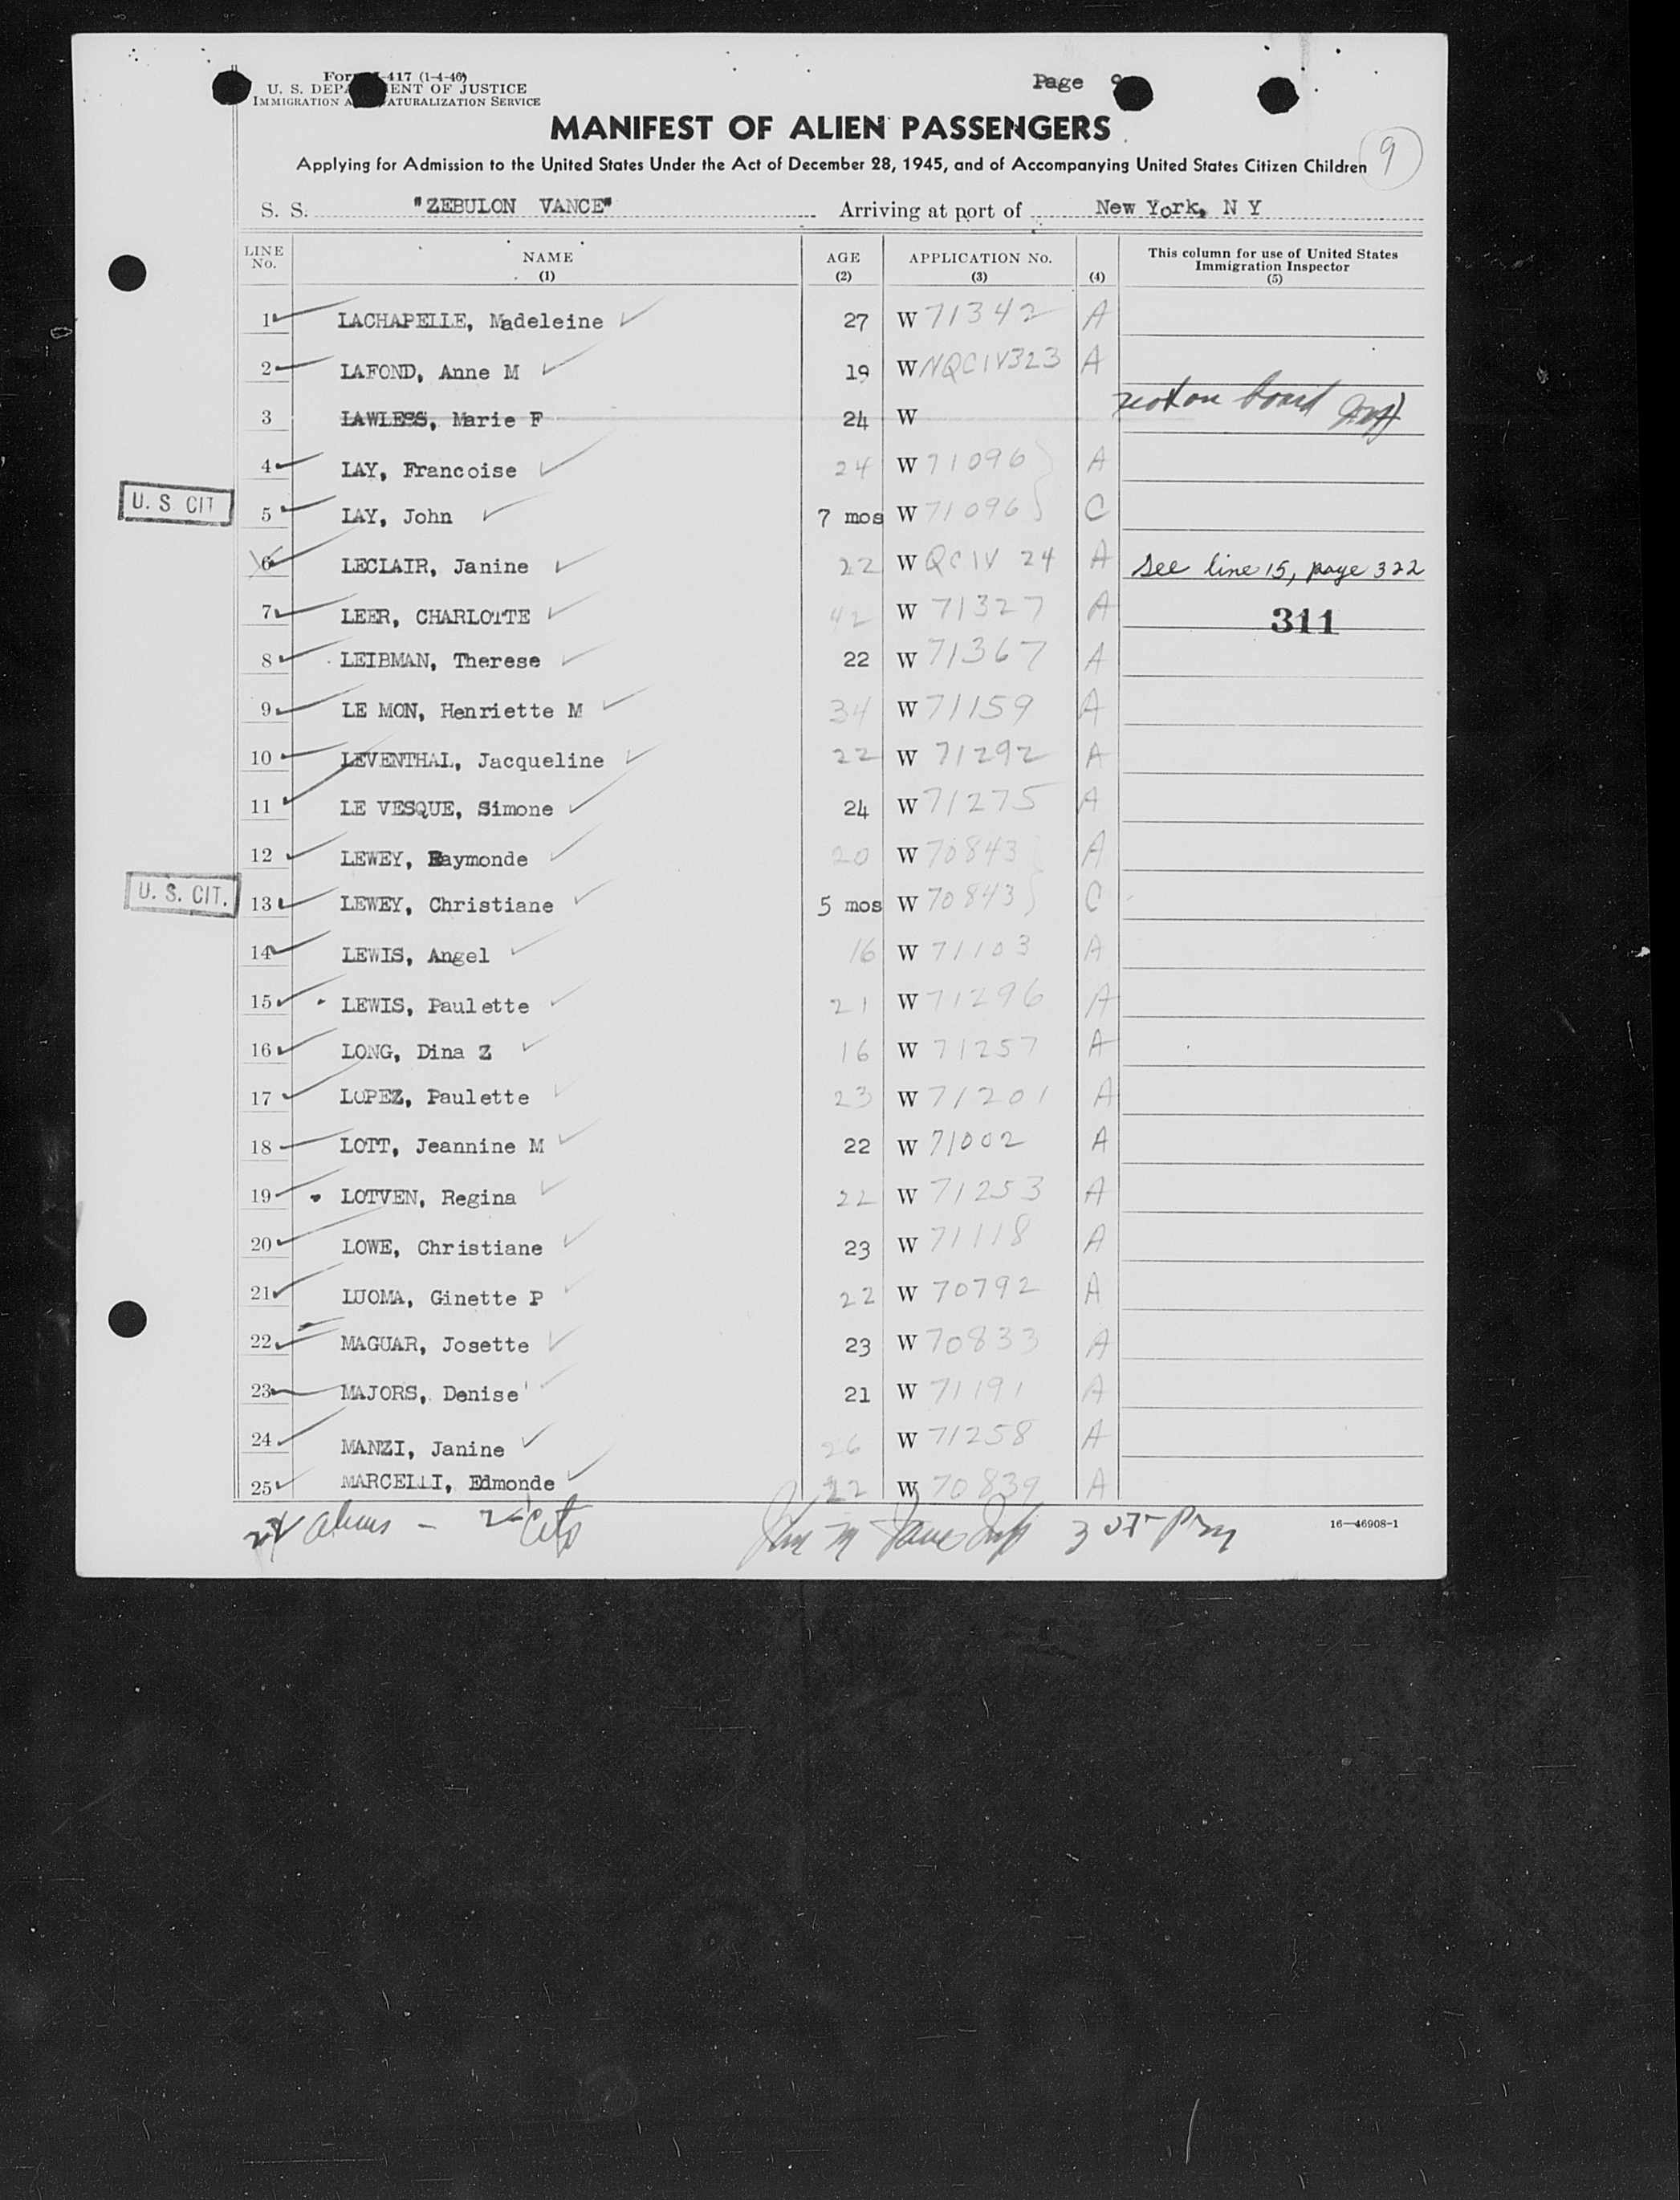 Form I-417 (1-4-46)
U. S. DEPARTMENT OF JUSTICE
IMMIGRATION AND NATURALIZATION SERVICE
Page 9
MANIFEST OF ALIEN PASSENGERS
Applying for Admission to the United States Under the Act of December 28, 1945, and of Accompanying United States Citizen Children
9
S. S. "ZEBULON VANCE" Arriving at port of New York, N Y
LINE No. NAME (1) AGE (2) APPLICATION No. (3) (4) This column for use of United States Immigration Inspector (5)
1 LACHAPELLE, Madeleine 27 W 71342 A
2 LAFOND, Anne M 19 W NQCIV323 A
3 LAWLESS, Marie F 24 W not on board
4 LAY, Francoise 24 W 71096 A
U. S. CIT 5 LAY, John 7 mos W 71096 C
6 LECLAIR, Janine 22 W QCIV 24 A See line 15, page 322
7 LEER, CHARLOTTE 42 W 71327 A 311
8 LEIBMAN, Therese 22 W 71367 A
9 LE MON, Henriette M 34 W 71159 A
10 LEVENTHAL, Jacqueline 22 W 71292 A
11 LE VESQUE, Simone 24 W 71275 A
12 LEWEY, Raymonde 20 W 70843 A
U. S. CIT. 13 LEWEY, Christiane 5 mos W 70843 C
14 LEWIS, Angel 16 W 71103 A
15 LEWIS, Paulette 21 W 71296 A
16 LONG, Dina Z 16 W 71257 A
17 LOPEZ, Paulette 23 W 71201 A
18 LOTT, Jeannine M 22 W 71002 A
19 LOTVEN, Regina 22 W 71253 A
20 LOWE, Christiane 23 W 71118 A
21 LUOMA, Ginette P 22 W 70792 A
22 MAGUAR, Josette 23 W 70833 A
23 MAJORS, Denise 21 W 71191 A
24 MANZI, Janine 26 W 71258 A
25 MARCELLI, Edmonde 22 W 70839 A
aliens - 2 Cits
16—46908-1